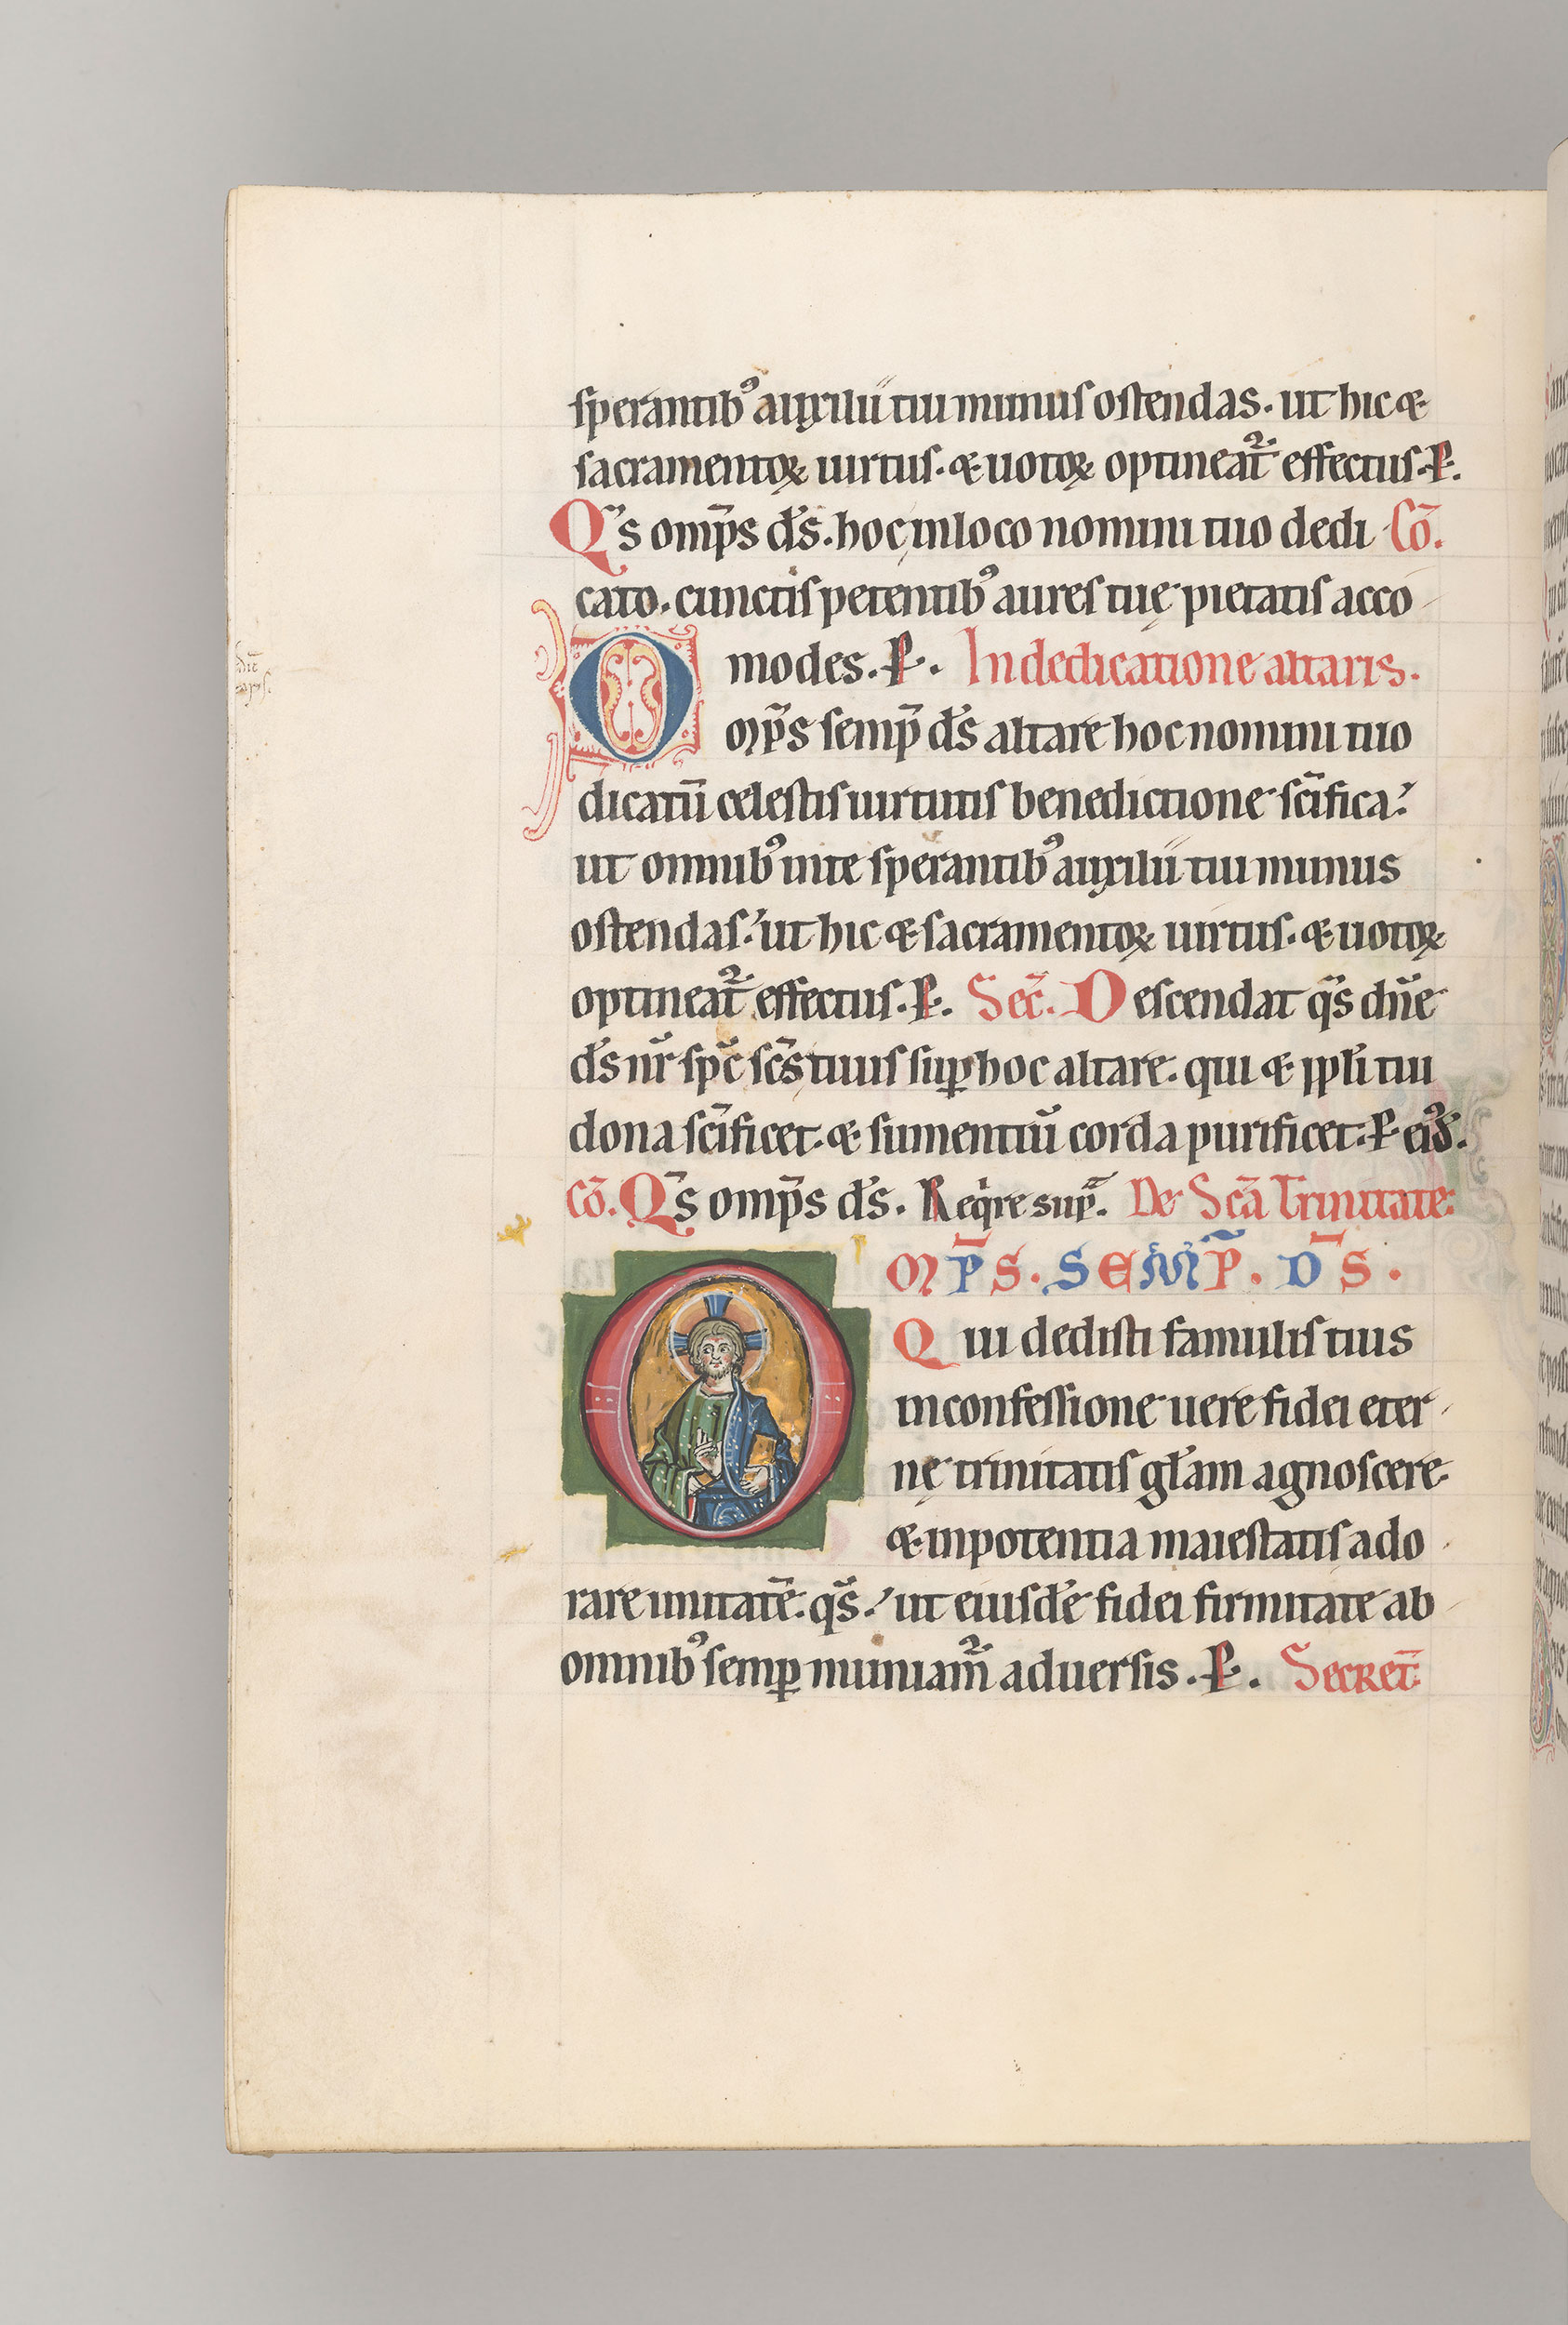 sperantib⁹ auxilii tui munus ostendas. ut hic &
sacramentoꝝ uirtus. & uotoꝝ optineat᷑ effectus. P.
Qs̄ omp̄s d̄s. hoc in loco nomini tuo dedi Cō.
cato. cunctis petentib⁹ aures tuę pietatis acco
modes. P. In dedicatione altaris.
Omp̄s semp̄ d̄s altare hoc nomini tuo
dicatū celestis uirtutis benedictione sc̄ifica.
ut omnib⁹ in te sperantib⁹ auxilii tui munus
ostendas. ut hic & sacramentoꝝ uirtus. & uotoꝝ
optineat᷑ effectus. P. Sec̄. Descendat qs̄ dn̄e
d̄s nr̄ sp̄c sc̄s tuus suꝑ hoc altare. qui & ppl̄i tui
dona sc̄ificet. & sumentiū corda purificet. P ei⁹d̄.
Cō. Qs̄ omp̄s d̄s. Reqͥre sup̄. De Sc̄a Trinitate.
OMP̄S. SEMP̄. D̄S.
Qui dedisti famulis tuis
in confessione uere fidei eter
nę trinitatis gl̄am agnoscere
& in potentia maiestatis ado
rare unitatē. qs̄. ut eiusdē fidei firmitate ab
omnib⁹ semꝑ muniam᷑ aduersis. P. Secret̄